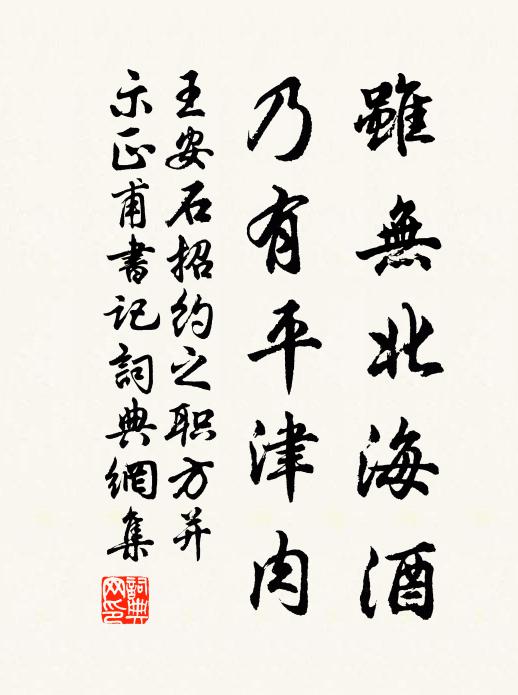 雖無北海酒
乃有平津肉
王安石招約之职方并
示正甫書记詞典網集
詞典网印